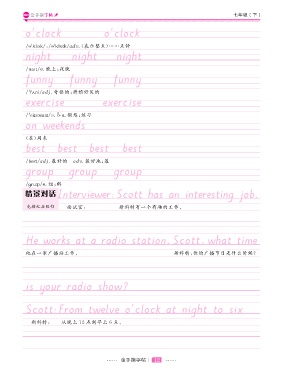 七年级(下)
o'clock o'clock
night night night
/naɪt/n.晚上;夜晚
funny funny funny
/ˈfʌni/adj.奇怪的;滑稽好笑的
exercise exercise
/ˈeksəsaɪz/v.&n.锻炼;练习
on weekends
(在)周末
best best best best
/best/adj.最好的 adv.最好地;最
group group group
/gruːp/n.组;群
情景对话 Interviewer: Scott has an interesting job.
采访者: 斯科特有一个有趣的工作。
He works at a radio station. Scott, what time
他在一家广播站工作。 斯科特,你的广播节目是什么时候?
is your radio show?
Scott: From twelve o'clock at night to six
斯科特: 从晚上12点到早上6点。
12